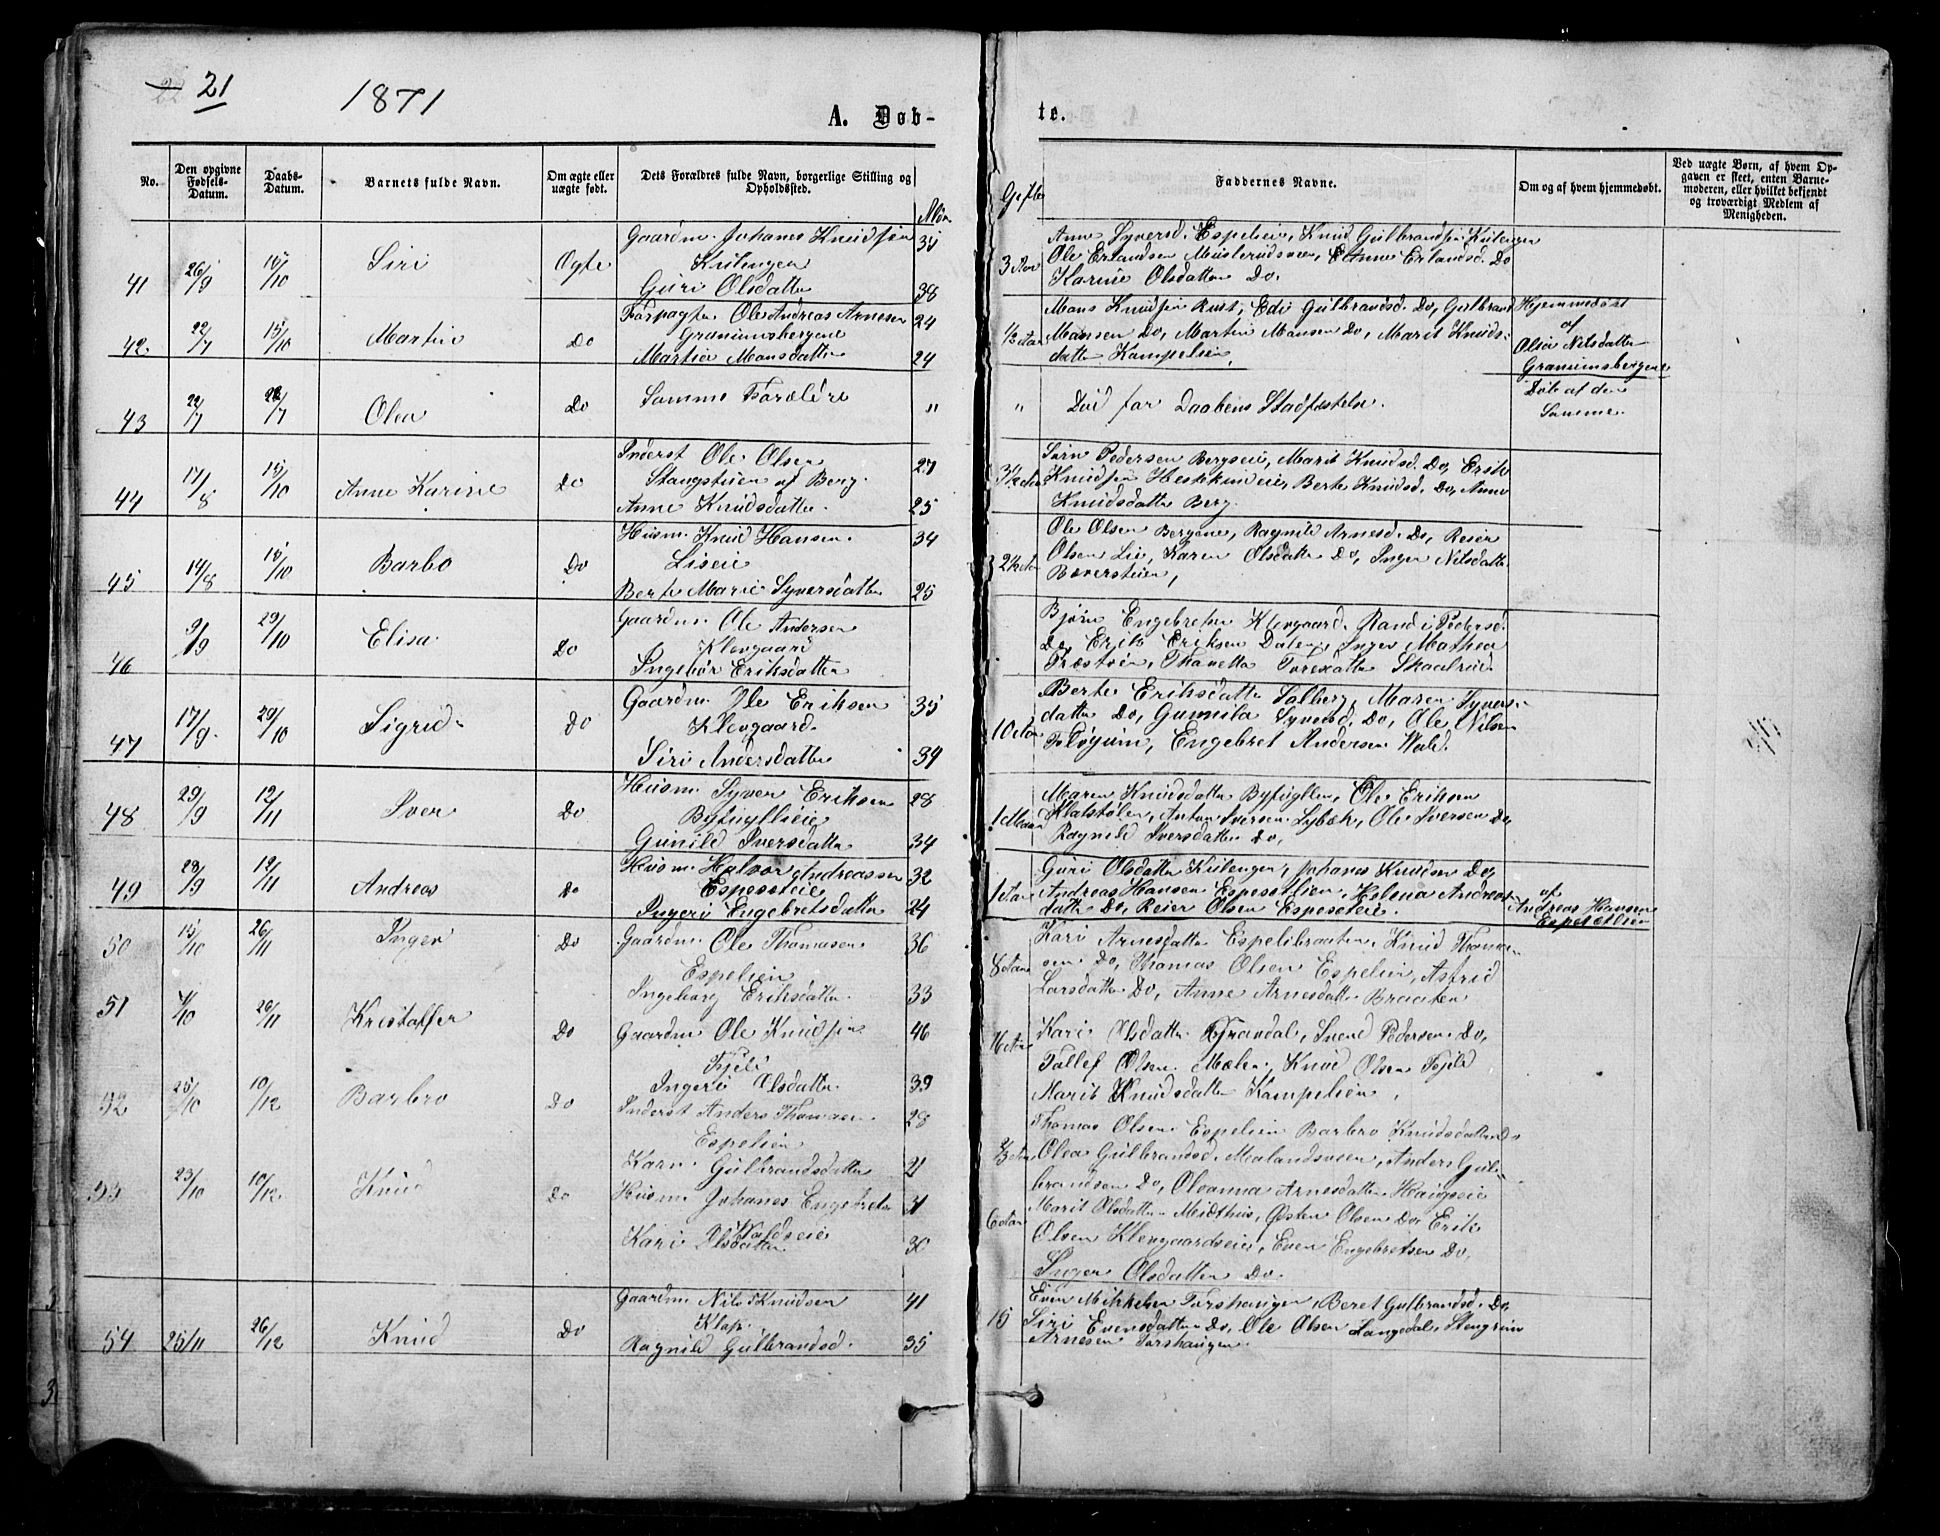 22 21
1871
A. Døb-
te.
No.
Den opgivne Fødsels-Datum.
Daabs-Datum.
Barnets fulde Navn.
Om ægte eller uægte født.
Dets Forældres fulde Navn, borgerlige Stilling og Opholdssted.
Alder
Gifte
Faddernes Navne.
Om og af hvem hjemmedøbt.
Ved uægte Børn, af hvem Opgaven er skeet, enten Barnemoderen, eller hvilket bekjendt og troværdigt Medlem af Menigheden.
41 26/9 15/10 Siri Ægte
Gaardm. Johanes Knudsen 35
Kulengen
Guri Olsdatter 38
3
Anne Syversd. Espelien, Knud Gulbrandsen Kulengen
Ole Erlandsen Muslerudsveen, Anne Erlandsd. Do
Karine Olsdatter Do.
42. 22/7 15/10 Martin Do
Forpagter Ole Andreas Arnesen 24
Granumsbergene
Martia Monsdatter 24
1/2
Mons Knudsen Rust, Edi Gulbrandsd. Do, Gulbrand
Monsen Do, Martin Monsen Do, Marit Knuds-
datter Kampelien,
Hjemmedøbt
af
Olea Nilsdatter
Granumsbergene
43 22/7 22/7 Olea Do
Samme Forældre "
" Død før Daabens Stadfæstelse.
Døbt af den
Samme.
44 17/8 15/10 Anne Karine Do
Inderst Ole Olsen 27
Stangstuen af Berg.
Anne Knudsdatter. 25
3 1/2
Søren Pedersen Bergseie, Marit Knudsd. Do, Erik
Knudsen Hestekindeie, Berte Knudsd. Do, Anne
Knudsdatter Berg.
45 14/8 15/10 Barbo Do
Husm. Knud Hansen. 34
Liseie
Berte Marie Syversdatter 25
2 1/2
Ole Olsen Bergene, Ragnild Arnesd. Do, Reier
Olsen Lie, Karen Olsdatter Do, Inger Nilsdatter
Bæversteien,
46 9/9 29/10 Elisa Do
Gaardm. Ole Andersen
Klevgaard
Ingebor Eriksdatter
Bjørn Engebretsen Klevgaard, Randi Pedersd.
Do, Erik Eriksen Dalen, Inger Mathea
Thoretta Toresdatter Skaalrud.
47 17/9. 29/10 Sigrid Do
Gaardm. Ole Eriksen 35
Klevgaard.
Siri Andersdatter 34
10
Berte Eriksdatter Solberg, Maren Syvers-
datter Do, Gunnila Syversd. Do, Ole Nilsen
Engebret Andersen Wold.
48 29/9 12/11 Iver Do
Husm. Syver Eriksen 28
Byfuglleie
Gunild Iversdatter 34
1
Maren Knudsdatter Byfugllien, Ole Eriksen
Klatstølen, Anton Iversen Sybæk, Ole Iversen Do,
Ragnild Iversdatter Do,
49 28/9 12/11 Andreas Do
Husm. Halvor Andreassen 32
Espeseteie
Ingeri Engebretsdatter 24
1
Guri Olsdatter Kulengen, Johanes Knudsen Do,
Andreas Hansen Espesetlien, Helena Andreas-
datter Do, Reier Olsen Espeseteie.
af
Andreas Hansen
Espesetlien
50 15/10 26/11 Inger Do
Gaardm. Ole Thomasen 36
Espelien
Ingeborg Eriksdatter. 33
8
Kari Arnesdatter Espelibraaten, Knud Thoma-
sen Do, Thomas Olsen Espelien, Astrid
Larsdatter Do, Anne Arnesdatter Braaten
51 4/10 26/11 Kristoffer Do
Gaardm Ole Knudsen 46
Fjeld
Ingeri Olsdatter. 39
Kari Olsdatter Grøndal, Svend Pedersen Do,
Tollef Olsen Mælen, Knud Olsen Fjeld
Marit Knudsdatter Kampelien,
52 25/10 10/12 Barbro Do
Inderst Anders Thomasen. 28
Espelien
Karn Gulbrandsdatter 21
Thomas Olsen Espelien Barbro Knudsdatter Do
Olea Gulbrandsd. Mælandsveen, Anders Gul-
brandsen Do, Oleanna Arnesdatter Haugseie
53 23/10 10/12 Knud Do
Husm. Johanes Engebretsen 31
Woldseie
Kari Olsdatter 30
6
Marit Olsdatter Midthus, Østen Olsen Do, Erik
Olsen Klevgaardseie, Even Engebretsen Do,
Inger Olsdatter Do.
54 25/11 26/12 Knud Do
Gaardm. Nils Knudsen 41
Kløp.
Ragnild Gulbrandsd. 35
15
Even Mikkelsen Torshaugen, Beret Gulbrandsd. Do,
Siri Evensdatter Do, Ole Olsen Langedal, Stengrim
Arnesen Torshaugen.